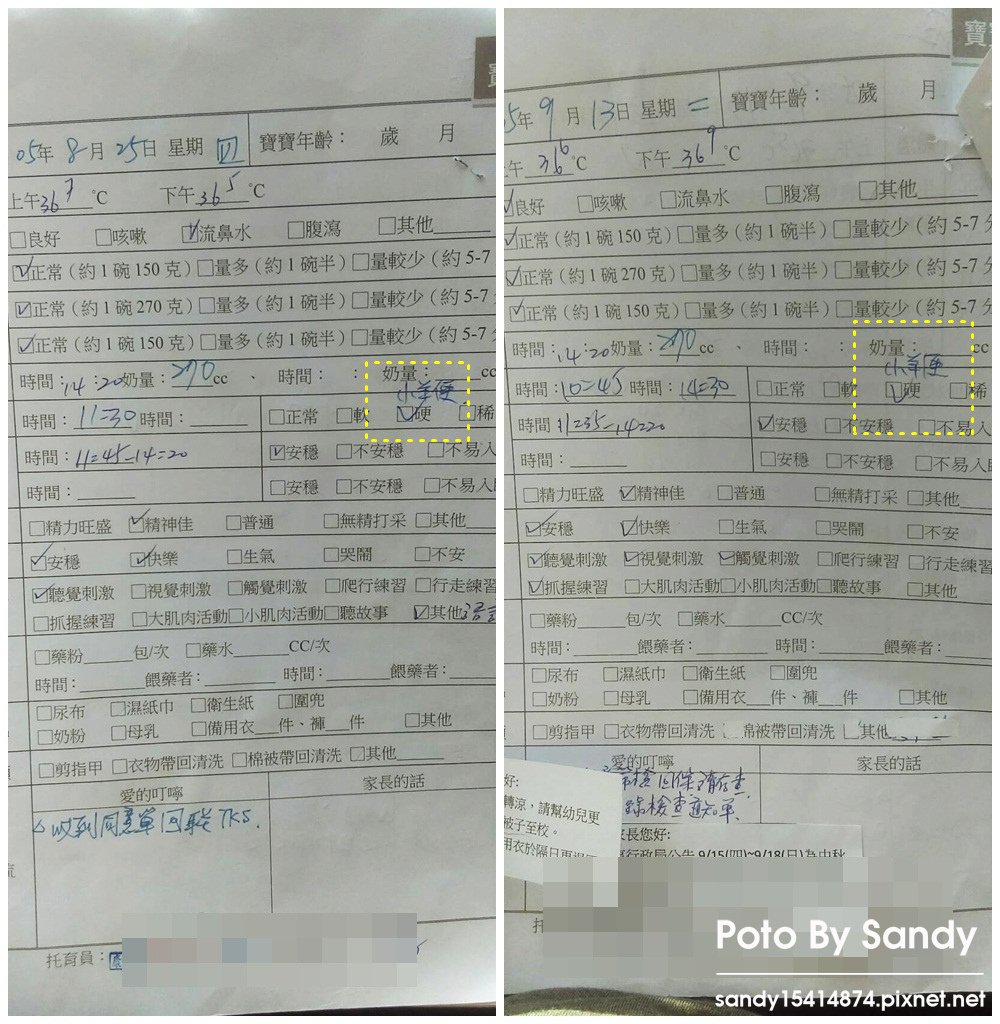 寶
05年 8月 25日 星期 四 寶寶年齡： 歲 月
上午36.7 ℃ 下午36.5 ℃
□良好 □咳嗽 ☑流鼻水 □腹瀉 □其他
☑正常（約1碗150克）□量多（約1碗半）□量較少（約5-7
☑正常（約1碗270克）□量多（約1碗半）□量較少（約5-7
☑正常（約1碗150克）□量多（約1碗半）□量較少（約5-7
時間：14：20奶量：270cc 、 時間： ： 奶量： cc
小羊便
時間：11=30 時間： □正常 □軟 ☑硬 □稀
時間：11=45-14=20 ☑安穩 □不安穩 □不易入
時間： □安穩 □不安穩 □不易入
□精力旺盛 ☑精神佳 □普通 □無精打采 □其他
☑安穩 ☑快樂 □生氣 □哭鬧 □不安
☑聽覺刺激 □視覺刺激 □觸覺刺激 □爬行練習 □行走練習
□抓握練習 □大肌肉活動□小肌肉活動□聽故事 ☑其他
□藥粉 包/次 □藥水 CC/次
時間： 餵藥者： 時間： 餵藥者：
□尿布 □濕紙巾 □衛生紙 □圍兜
□奶粉 □母乳 □備用衣 件、褲 件 □其他
□剪指甲 □衣物帶回清洗 □棉被帶回清洗 □其他
愛的叮嚀 家長的話
收到同意單回聯 TKS.
托育員：
寶
5年 9月 13日 星期 二 寶寶年齡： 歲 月
午 36.6 ℃ 下午 36.9 ℃
☑良好 □咳嗽 □流鼻水 □腹瀉 □其他
☑正常（約1碗150克）□量多（約1碗半）□量較少（約5-7
☑正常（約1碗270克）□量多（約1碗半）□量較少（約5-7 分
☑正常（約1碗150克）□量多（約1碗半）□量較少（約5-7 分
時間：14：20奶量：270cc 、 時間： ： 奶量： cc
小羊便
時間：10=45 時間：14=30 □正常 □軟 ☑硬 □稀
時間：11=35-14=20 ☑安穩 □不安穩 □不易入
時間： □安穩 □不安穩 □不易入
□精力旺盛 ☑精神佳 □普通 □無精打采 □其他
☑安穩 ☑快樂 □生氣 □哭鬧 □不安
☑聽覺刺激 ☑視覺刺激 ☑觸覺刺激 □爬行練習 □行走練
☑抓握練習 □大肌肉活動□小肌肉活動□聽故事 □其他
□藥粉 包/次 □藥水 CC/次
時間： 餵藥者： 時間： 餵藥者：
□尿布 □濕紙巾 □衛生紙 □圍兜
□奶粉 □母乳 □備用衣 件、褲 件 □其他
□剪指甲 □衣物帶回清洗 棉被帶回清洗 其他
愛的叮嚀 家長的話
檢查通知單.
好:
轉涼，請幫幼兒更
被子至校。
用衣於隔日再
家長您好:
行政局公告 9/15(四)~9/18(日)為中秋
Poto By Sandy
sandy15414874.pixnet.net